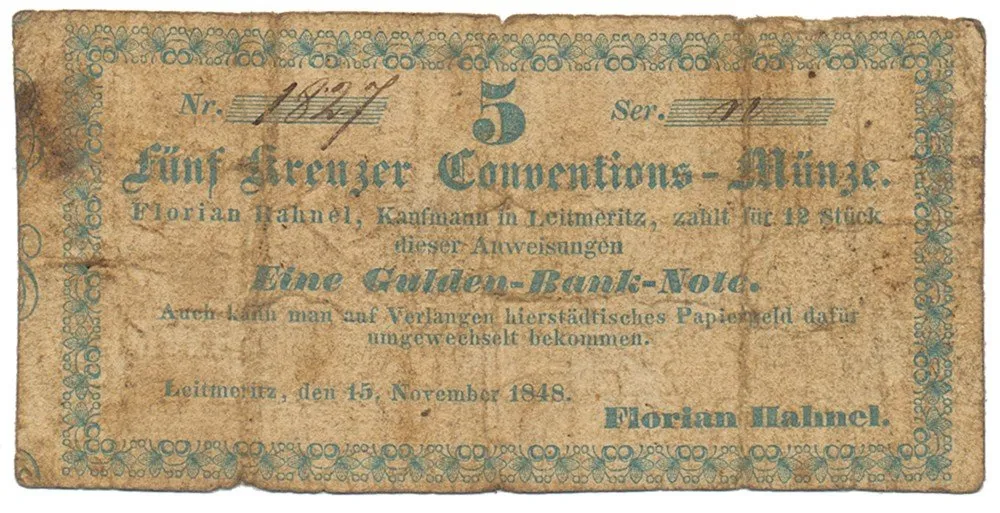 Nr. 1827 5 Ser. n
Fünf Kreuzer Conventions-Münze.
Florian Hahnel, Kaufmann in Leitmeritz, zahlt für 12 Stück
dieser Anweisungen
Eine Gulden-Bank-Note.
Auch kann man auf Verlangen hierstädtisches Papiergeld dafür
umgewechselt bekommen.
Leitmeritz, den 15. November 1848.
Florian Hahnel.